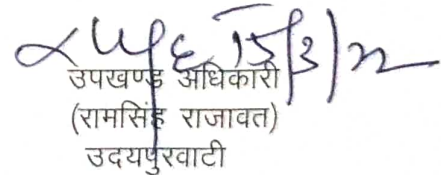 15/3/22
उपखण्ड अधिकारी
(रामसिंह राजावत)
उदयपुरवाटी